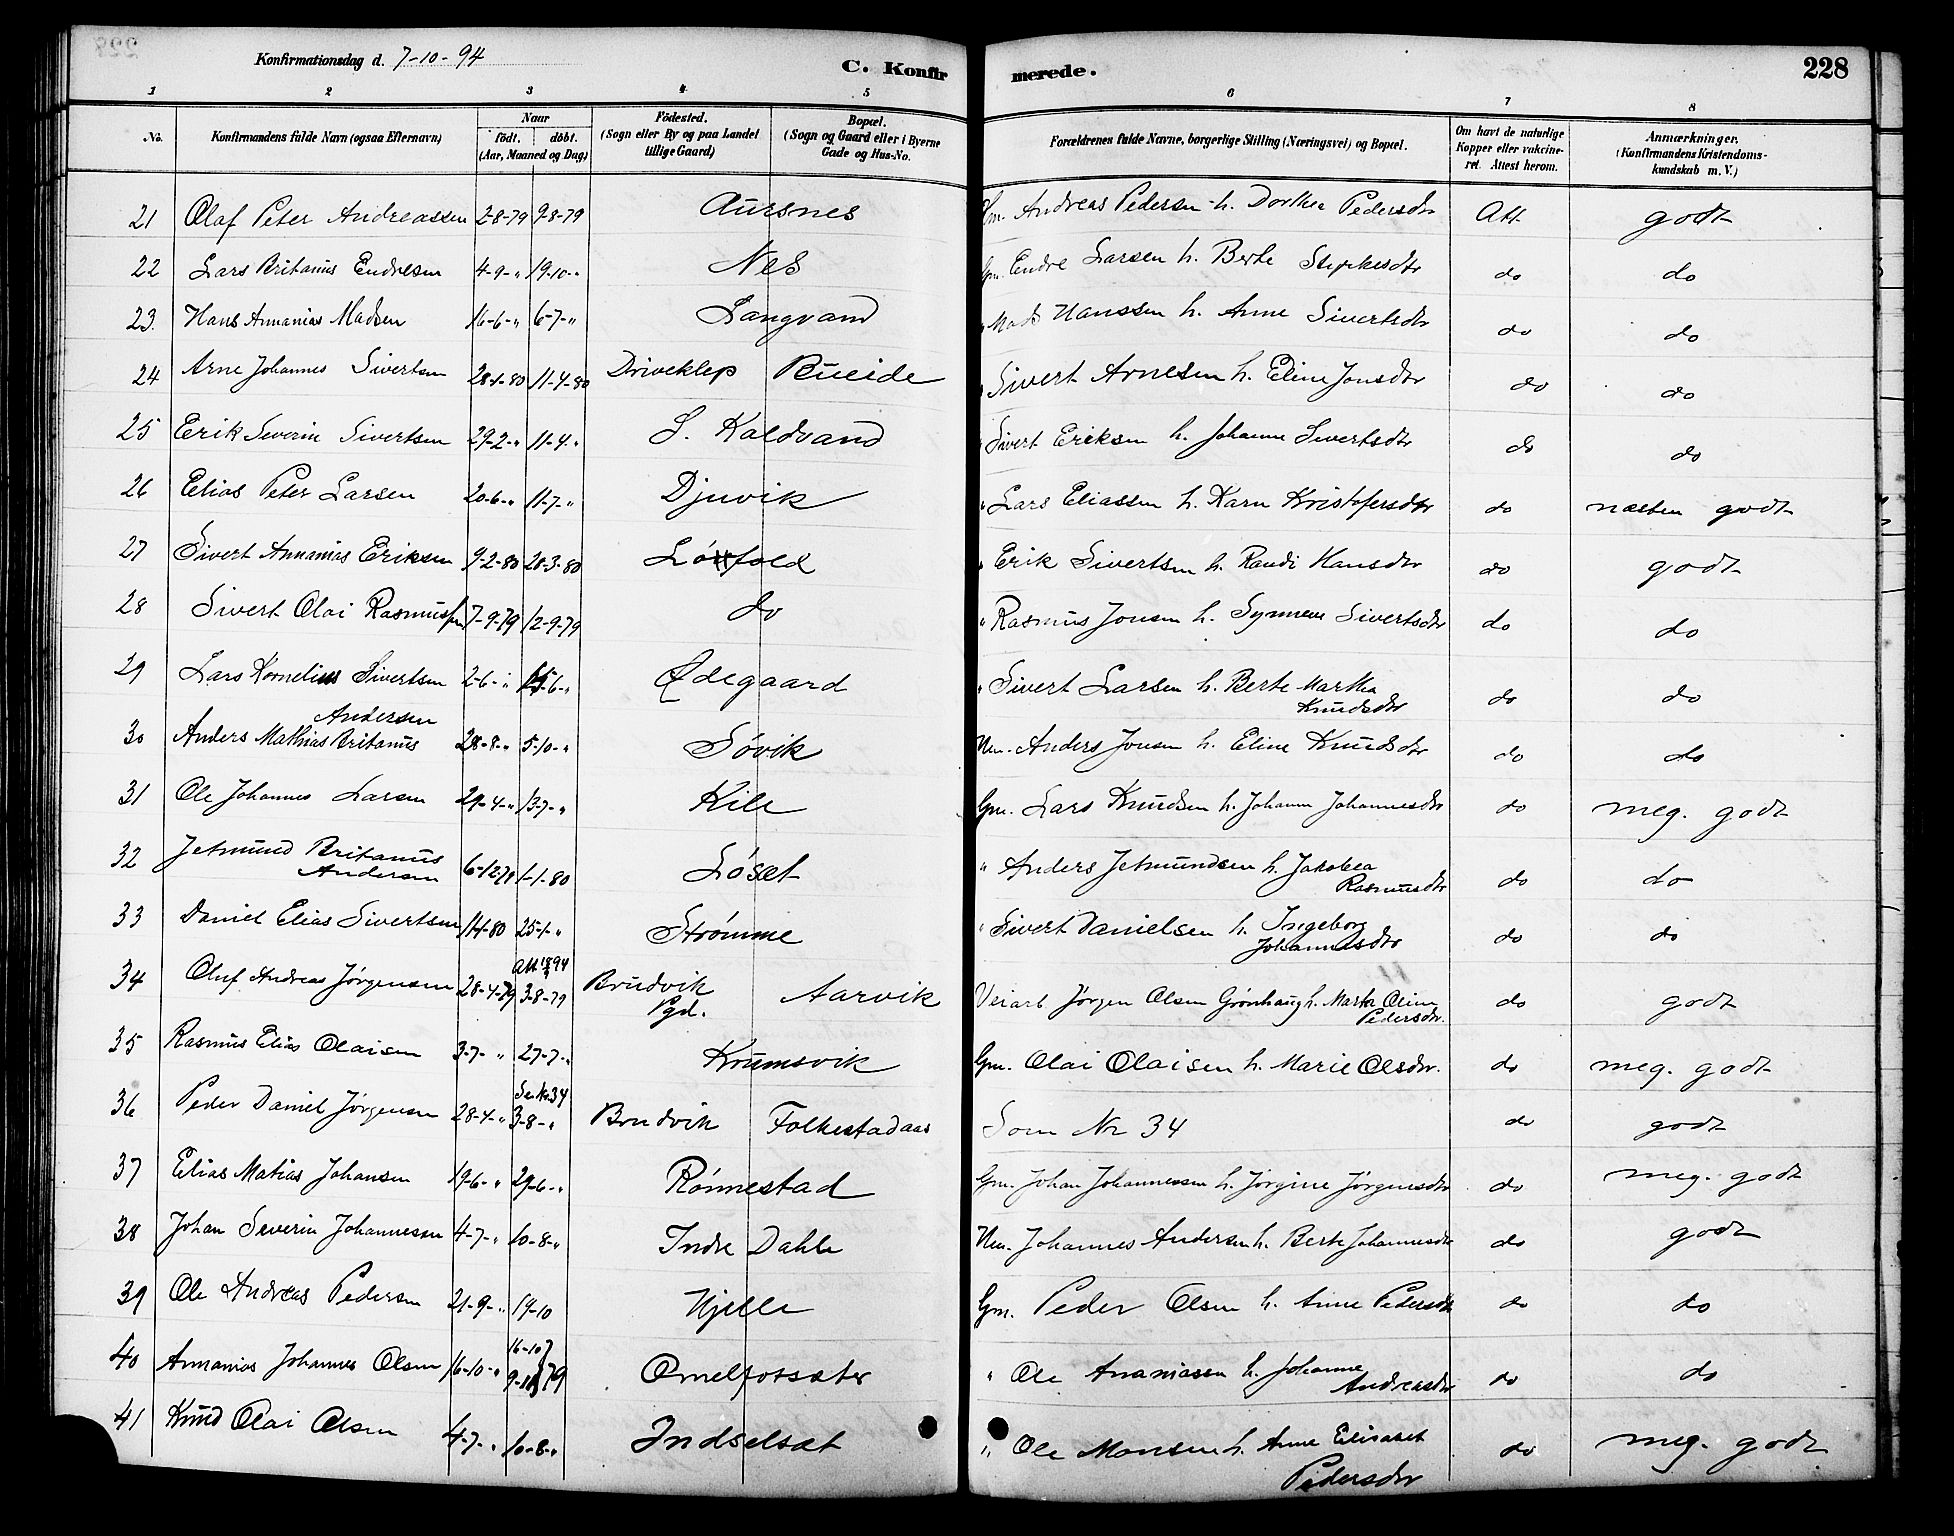 Konfirmationsdag d. 7-10-94 C. Konfirmerede. 228
1 2 3 4 5 6 7 8
No. Konfirmandens fulde Navn (ogsaa Efternavn) Naar født. døbt. (Aar, Maaned og Dag) Fødested. (Sogn eller By og paa Landet tillige Gaard) Bopæl. (Sogn og Gaard eller i Byerne Gade og Hus-No. Forældrenes fulde Navne, borgerlige Stilling (Næringsvei) og Bopæl. Om havt de naturlige Kopper eller vakcineret. Attest herom. Anmærkninger. (Konfirmandens Kristendomskundskab m. V.)
21 Olaf Peter Andreassen 2-8-79 9-8-79 Aursnes Gm. Andreas Pedersen h. Dorthea Pedersdtr Att godt
22 Lars Britanus Endresen 4-9-" 19-10-" Nes Gm. Endre Larsen h. Berte do do
23. Hans Annanias Madsen 16-6-" 6-7-" Langvand " Mads Hanssen h. Anne Sivertsdtr do do
24 Arne Johannes Sivertsen 28-1-80 11-4-80 Driveklep Bueide " Sivert Arnesen h. Eline Jonsdtr do do
25 Erik Severin Sivertsen 29-2-" 11-4-" S. Kaldvand " Sivert Eriksen h. Johanne Sivertsdtr do do
26 Elias Peter Larsen 20-6-" 11-7-" Djuvik " Lars Eliassen h. Karn Kristofersdtr do næsten godt
27 Sivert Annanias Eriksen 9-2-80 28-3-80 Løfold " Erik Sivertsen h. Randi Hansdtr do godt
28 Sivert Olai Rasmussen 7-9-79 12-9-79 do " Rasmus Jonsen h. Synneve Sivertsdtr do do
29 Lars Kornelius Sivertsen 2-6-" 15-6-" Ødegaard " Sivert Larsen h. Berte Martha Knudsdtr do do
30 Anders Mathias Britanus Andersen 28-8-" 5-10-" Søvik Hm. Anders Jonsen h. Eline Knudsdtr do do
31 Ole Johannes Larsen 29-4-" 13-7-" Kile Gm. Lars Knudsen h. Johanne Johannesdtr do meg. godt
32 Jetmund Britanus Andersen 6-12-79 1-1-80 Løset " Anders Jetmundsen h. Jakobea Rasmusdtr do do
33 Daniel Elias Sivertsen 25-1-" Strømme " Sivert Danielsen h. Ingeborg Johannesdtr do do
34 Oluf Andreas Jørgensen 28-4-79 3-8-79 Brudvik Pgd. Aarvik Jørgen Olsen Grønhaug h. Marta Oline Pedersdtr. do godt
35 Rasmus Elias Olaisen 3-7-" 27-7-" Krumsvik Gm. Olai Olaisen h. Marie Olsdtr. do meg. godt
36 Peder Daniel Jørgensen 28-4-" Se No. 34 3-8-" Brudvik Folkestadaas Som Nr 34 do godt
37 Elias Matias Johansen 19-6-" 29-6-" Rønnestad Gm. Johan Johannessen h. Jørgine Jørgensdtr do meg. godt
38 Johan Severin Johannessen 4-7-" 10-8-" Indre Dahle Hm. Johannes Andersen h. Berte Johannesdtr do godt
39 Ole Andreas Pedersen 21-9-" 19-10 Hjelle Gm. Peder Olsen h. Anne Pedersdtr do do
40 Annanias Johannes Olsen 16-10-" 16-10 79 Omelfotsæter " Ole Ananiassen h. Johanne Andreasdtr do do
41 Knud Olai Olsen 4-7-" 10-8-" Indselsæt " Ole Monsen h. Anne Elisabet Pedersdtr do meg. godt